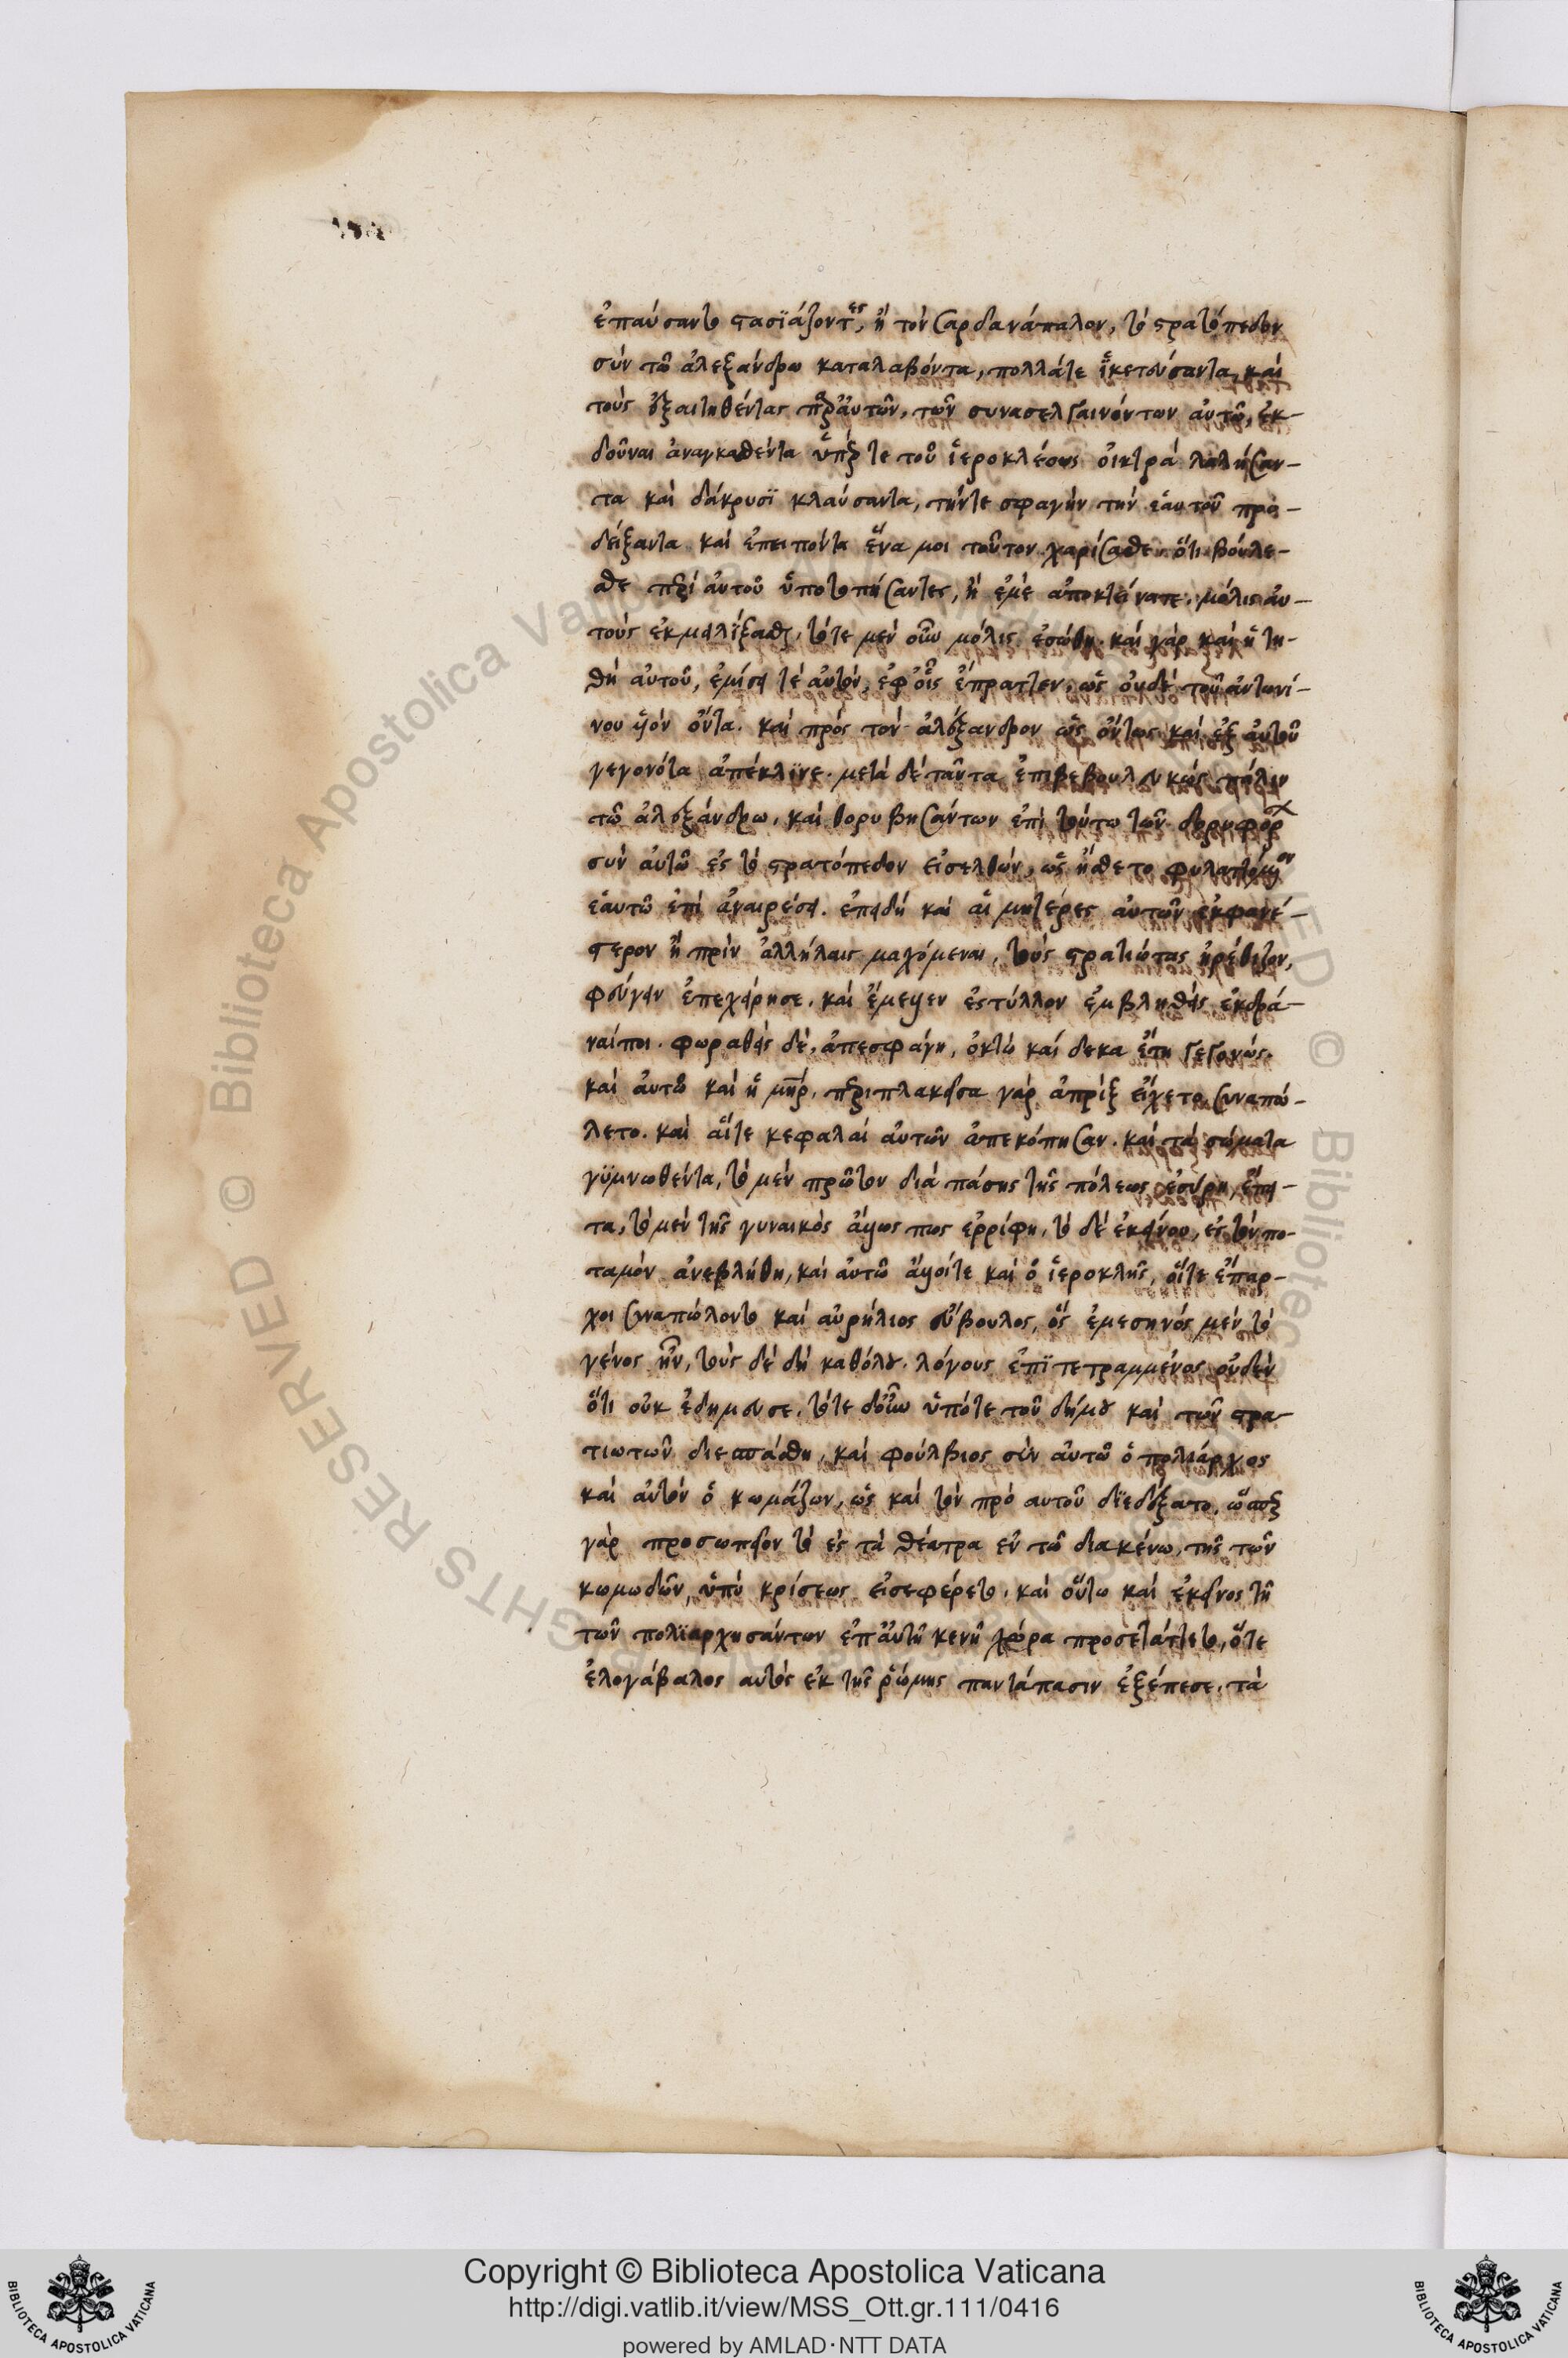 ἐπαύσαντο στασϊάζοντες, ἢ τὸν σαρδανάπαλον, τὸ στρατόπεδον
σὺν τῶ ἀλεξάνδρω καταλαβόντα, πολλάτε ἱκετεύσαντα, καὶ
τοὺς ἐξαιτηθέντας παρ' αὐτῶν, τῶν συνασελγαινόντων αὐτῶ, ἐκ-
δοῦναι ἀναγκασθέντα ὑπέρ τε τοῦ ἱεροκλέους οἰκτρὰ λαλήσαν-
τα καὶ δάκρυσϊ κλαύσαντα, τήντε σφαγὴν τὴν ἑαυτοῦ προ-
δείξαντα καὶ ἐπειπόντα ἕνα μοι τοῦτον χαρίσασθε ὅτι βούλε-
σθε περὶ αὐτοῦ ὑποτοπήσαντες, ἢ ἐμὲ ἀποκτείνατε. μόλις αὐ-
τοὺς ἐκμειλίξασθαι. τότε μὲν οὖν μόλις ἐσώθη. καὶ γὰρ καὶ ἡ τη-
θὴ αὐτοῦ, ἐμίσει τὲ αὐτὸν, ἐφ' οἷς ἔπραττεν, ὡς οὐδὲ τοῦ ἀντωνί-
νου υἱὸν ὄντα. καὶ πρὸς τὸν ἀλέξανδρον ὡς ὄντως καὶ ἐξ αὐτοῦ
γεγονότα ἀπέκλϊνε. μετὰ δὲ ταῦτα ἐπιβεβουλευκὼς πάλιν
τῶ ἀλεξάνδρω, καὶ θορυβησάντων ἐπὶ τούτω τῶν δορυφόρων
σὺν αὐτῶ ἐς τὸ στρατόπεδον εἰσελθὼν, ὡς ἤσθετο φυλαττόμενον
ἑαυτῶ ἐπὶ ἀναιρέσει. ἐπειδὴ καὶ αἱ μητέρες αὐτῶν ἐκφανέ-
στερον ἢ πρὶν ἀλλήλαις μαχόμεναι, τοὺς στρατιώτας ἠρέθιζον,
φεύγειν ἐπεχείρησε. καὶ ἔμεψεν ἐς τύλλον ἐμβληθεὶς ἐκδρά-
ναίποι. φωραθεὶς δὲ, ἀπεσφάγη, ὀκτὼ καὶ δεκα ἔτη γεγονώς.
καὶ αὐτῶ καὶ ἡ μήτηρ. περιπλακεῖσα γὰρ ἀπρὶξ εἴχετο συναπώ-
λετο. καὶ αἵτε κεφαλαὶ αὐτῶν ἀπεκόπησαν. καὶ τὰ σώματα
γϋμνωθέντα, τὸ μὲν πρῶτον διὰ πάσης τῆς πόλεως ἐσύρη, ἔπει-
τα, τὸ μὲν τῆς γυναικὸς ἄλλως πως ἐρρίφη, τὸ δὲ ἐκείνου, ἐς τὸν πο-
ταμὸν ἀνεβλήθη, καὶ αὐτῶ ἄλλοίτε καὶ ὁ ἱεροκλῆς, οἵτε ἔπαρ-
χοι συναπώλοντο καὶ αὐρήλιος εὔβουλος, ὃς ἐμεσηνὸς μὲν τὸ
γένος ἦν, τοὺς δὲ δὴ καθόλου λόγους ἐπϊτετραμμένος οὐδὲν
ὅτι οὐκ ἐδήμευσε. τότε δ' οὖν ὑπότε τοῦ δήμου καὶ τῶν στρα-
τιωτῶν διεσπάσθη, καὶ φούλβιος σὺν αὐτῶ ὁ πολιάρχος
καὶ αὐτὸν ὁ κωμάζων, ὡς καὶ τὸν πρὸ αυτοῦ δϊεδέξατο. ὥσπερ
γὰρ προσωπεῖον τὸ ἐς τὰ θέατρα ἐν τῶ διακένω, τῆς τῶν
κωμωδῶν, ὑπὸ κρίσεως εἰσεφέρετο, καὶ οὕτω καὶ ἐκεῖνος τῆ
τῶν πολϊαρχησάντων ἐπ' αὐτῆ κενῆ χώρα προσετάττετο, ὅτε
ἐλογάβαλος αὐτὸς ἐκ τῆς ῥώμης παντάπασιν ἐξέπεσε. τὰ
Copyright © Biblioteca Apostolica Vaticana
http://digi.vatlib.it/view/MSS_Ott.gr.111/0416
powered by AMLAD·NTT DATA